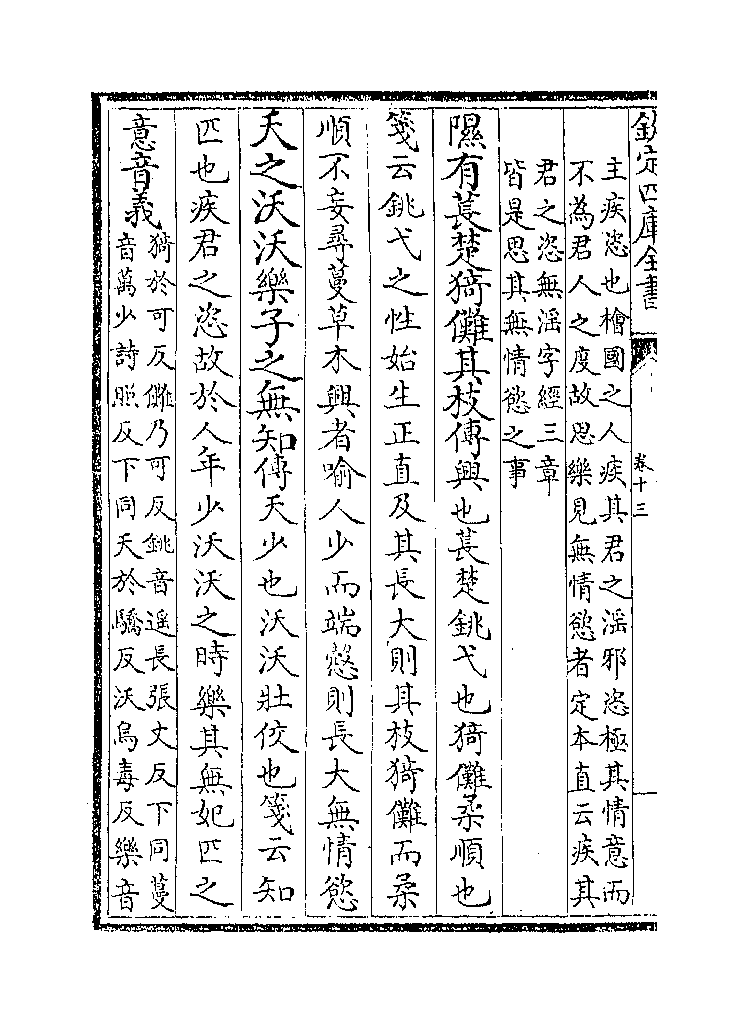 欽定四庫全書
卷十三
主疾恣也檜國之人疾其君之淫邪恣極其情意而
不為君人之度故思樂見無情慾者定本直云疾其
君之恣無淫字經三章
皆是思其無情慾之事
隰有萇楚猗儺其枝傳興也萇楚銚弋也猗儺柔順也
箋云銚弋之性始生正直及其長大則其枝猗儺而柔
順不妄尋蔓草木興者喻人少而端慤則長大無情慾
夭之沃沃樂子之無知傳夭少也沃沃壯佼也箋云知
匹也疾君之恣故於人年少沃沃之時樂其無妃匹之
意音義
猗於可反儺乃可反銚音遥長張丈反下同蔓
音萬少詩照反下同夭於驕反沃烏毒反樂音